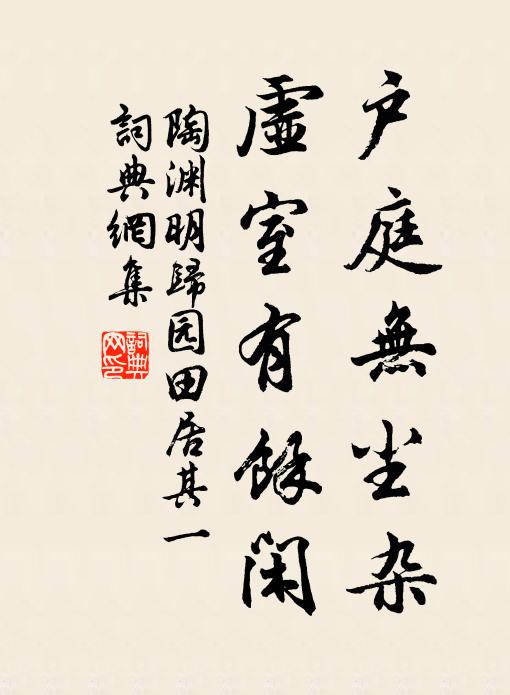 户庭無尘杂
虛室有餘闲
陶渊明歸园田居其一
詞典網集
詞典网印